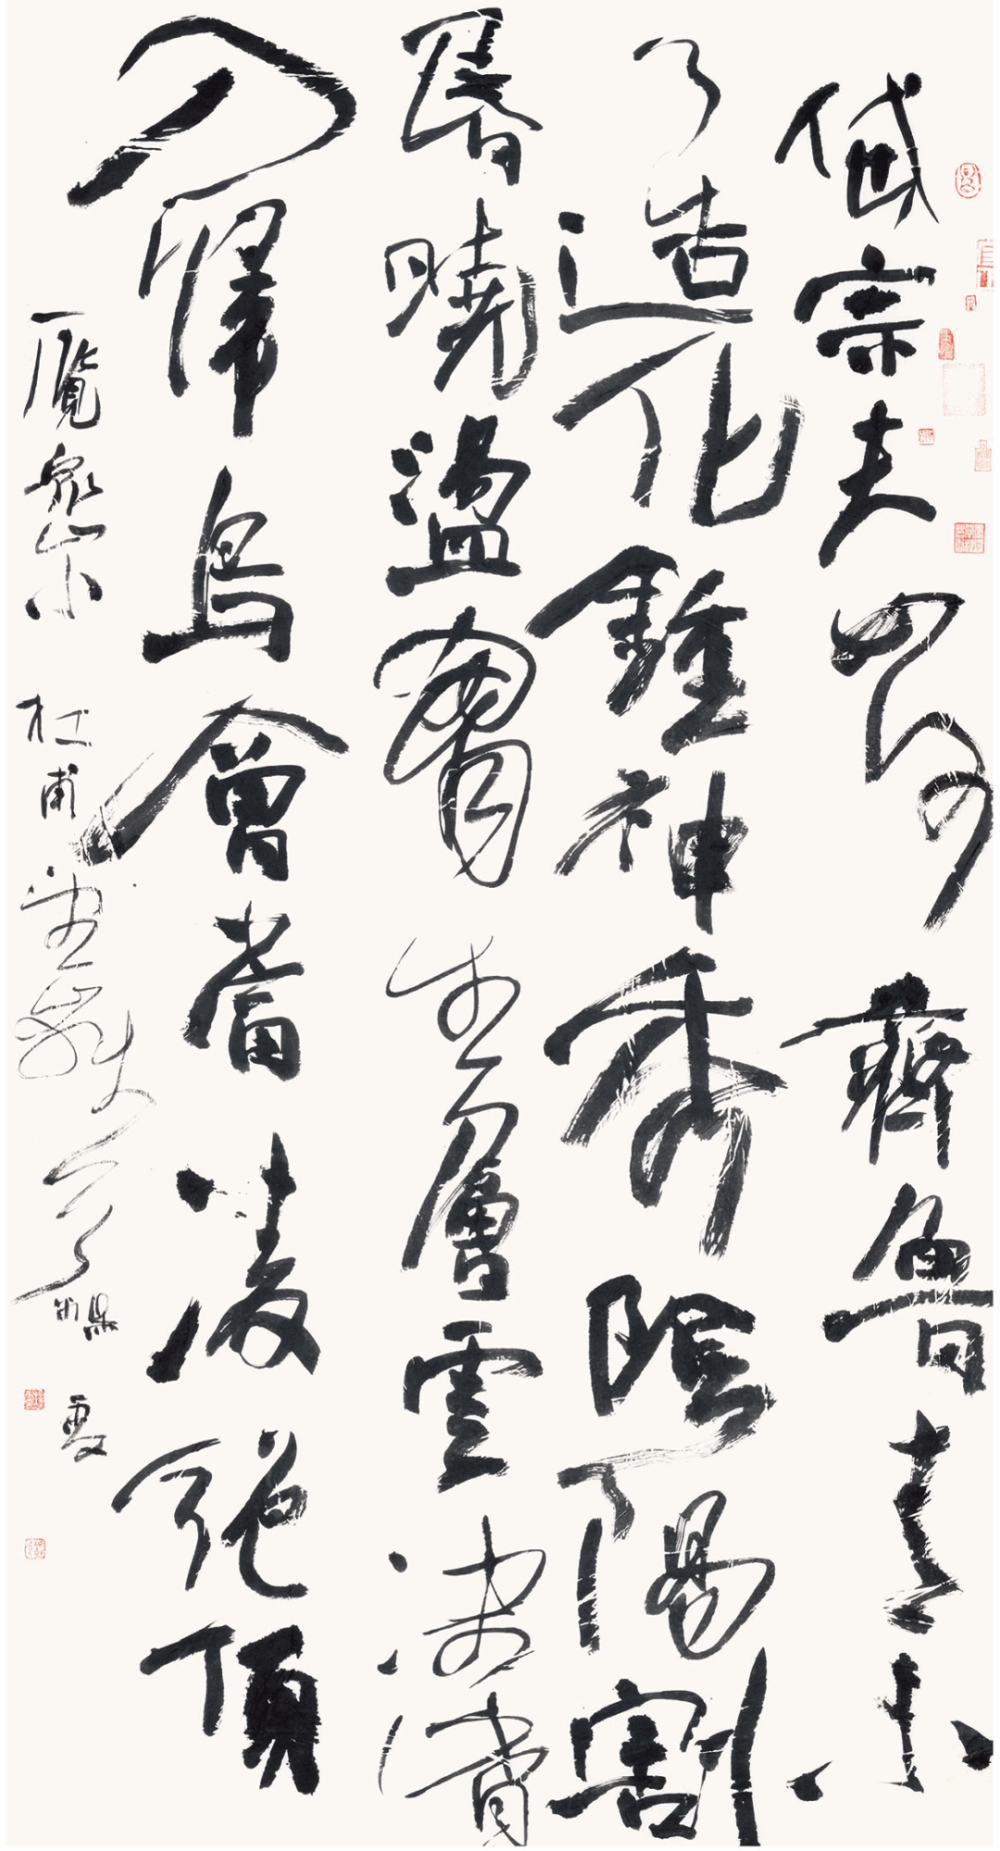 岱宗夫如何齊魯青未
了造化鍾神秀陰陽割
昏曉盪胷生層雲決眥
入歸鳥會當凌絕頂
一覽眾山小 杜甫望嶽